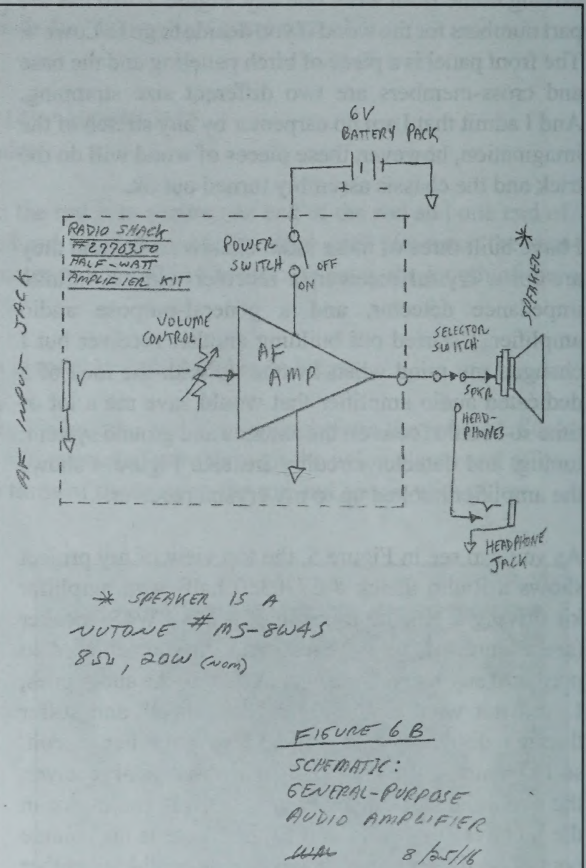 6V
BATTERY PACK
+
RADIO SHACK
#2770350
HALF-WATT
AMPLIFIER KIT
POWER
SWITCH
OFF
ON
*
SPEAKER
AF INPUT JACK
VOLUME
CONTROL
AF
AMP
SELECTOR
SWITCH
SPKR
HEAD-
PHONES
HEADPHONE
JACK
* SPEAKER IS A
NUTONE # MS-8W4S
8Ω, 20W (NOM)
FIGURE 6B
SCHEMATIC:
GENERAL-PURPOSE
AUDIO AMPLIFIER
8/25/16